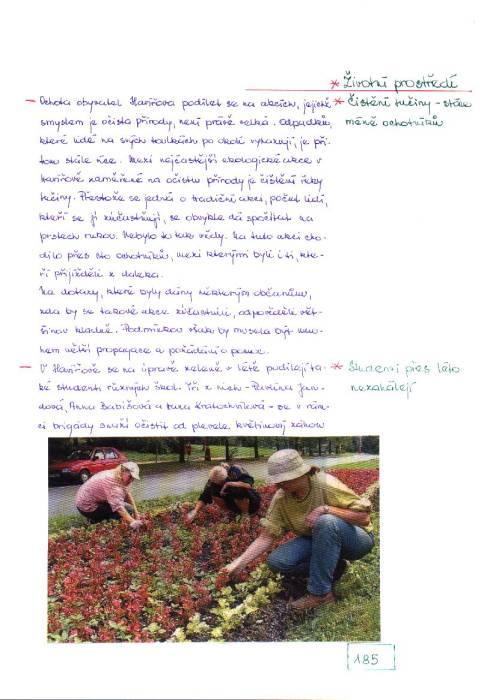 * Životní prostředí
- Ochota obyvatel Havířova podílet se na akcích, jejichž
smyslem je očista přírody, není právě velká. Odpadků,
které lidé na svých toulkách po okolí vyhazují, je při-
tom stále více. Mezi nejčastější ekologické akce v
Havířově zaměřené na očistu přírody je čištění řeky
Lučiny. Přestože se jedná o tradiční akci, počet lidí,
kteří se jí zúčastňují, se obvykle dá spočítat na
prstech rukou. Nebylo to tak vždy. Na tuto akci cho-
dilo přes sto ochotníků, mezi kterými byli i ti, kte-
ří přijížděli z daleka.
Na dotazy, které byly dány některým občanům,
zda by se takové akce zúčastnili, odpověděli vět-
šinou kladně. Podmínkou však by musela být mno-
hem větší propagace a požádání o pomoc.
* Čištění Lučiny - stále
méně ochotníků
- V Havířově se na úpravě zeleně v létě podílejí ta-
ké studenti různých škol. Tři z nich - Pavlína Jan-
dová, Anna Babišová a Kratochvílová - se v rám-
ci brigády snaží očistit od plevele květinový záhon
* Studenti přes léto
nezahálejí
185